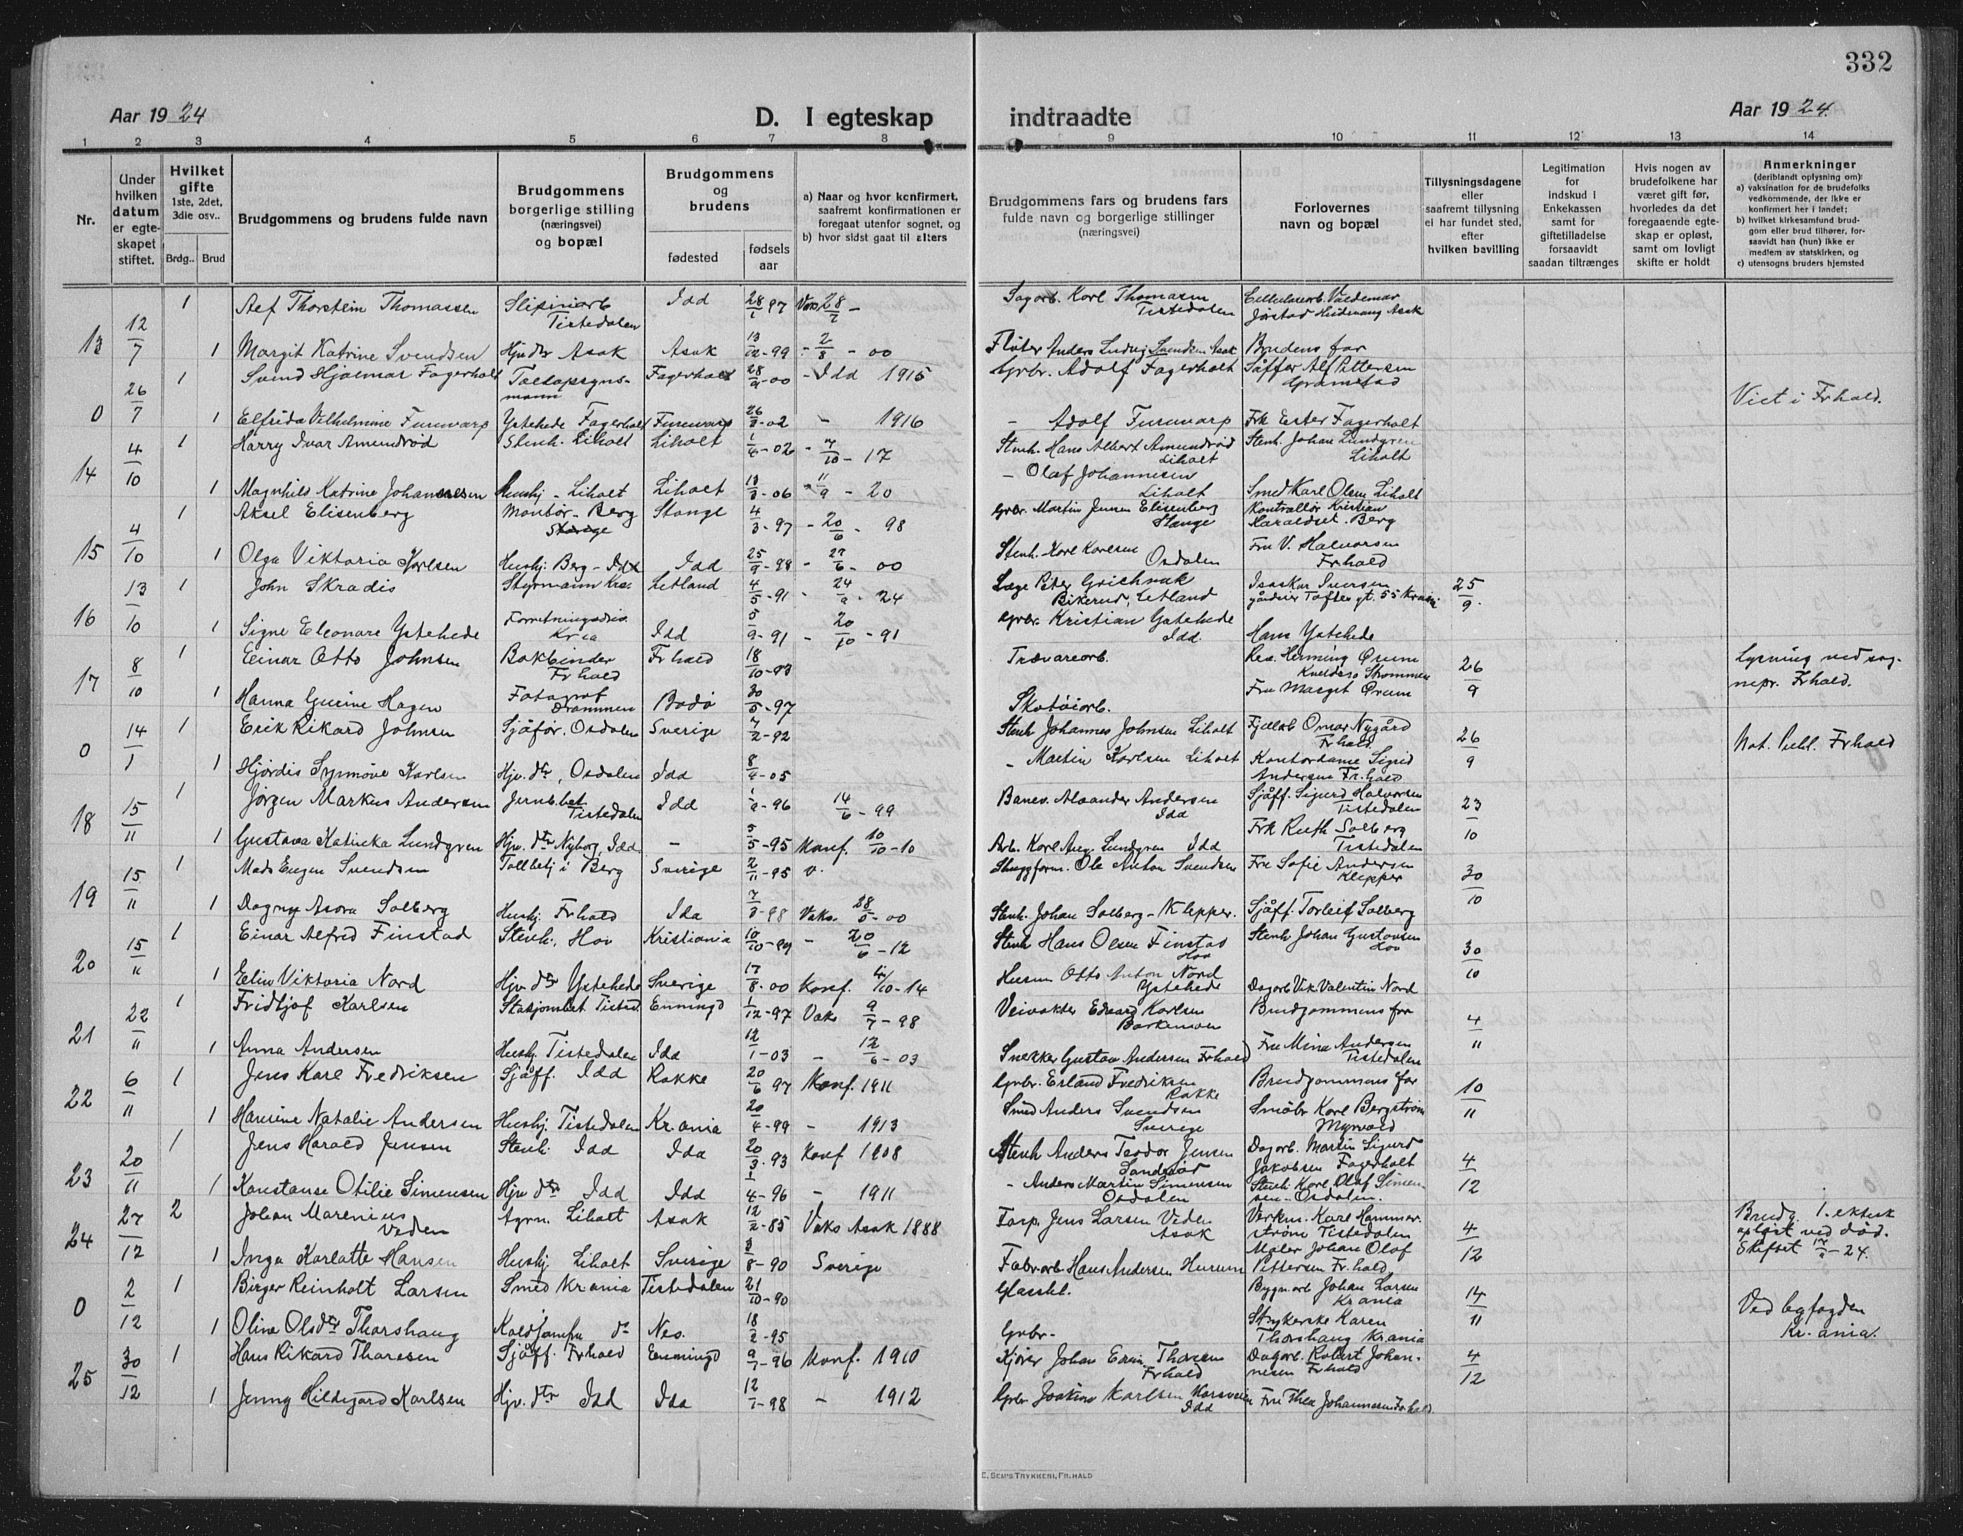 332
Aar 1924 D. I egteskap indtraadte Aar 1924.
1 2 3 4 5 6 7 8 9 10 11 12 13 14
Nr.
Under hvilken datum er egteskapet stiftet.
Hvilket gifte 1ste, 2det, 3die osv.. Brdg.. Brud
Brudgommens og brudens fulde navn
Brudgommens borgerlige stilling (næringsvei) og bopæl
Brudgommens og brudens fødested fødsels aar
a) Naar og hvor konfirmert, saafremt konfirmationen er foregaat utenfor sognet, og b) hvor sidst gaat til alters
Brudgommens fars og brudens fars fulde navn og borgerlige stillinger (næringsvei)
Forlovernes navn og bopæl
Tillysningsdagene eller saafremt tillysning ei har fundet sted, efter hvilken bavilling
Legitimation for indskud i Enkekassen samt for giftetilladelse forsaavidt saadan tiltrænges
Hvis nogen av brudefolkene har været gift før, hvorledes da det foregaaende egteskap er opløst, samt om lovligt skifte er holdt
Anmerkninger (deriblandt oplysning om): a) vaksination for de brudefolks vedkommende, der ikke er konfirmert her i landet; b) hvilket kirkesamfund brudgom eller brud tilhører, forsaavidt han (hun) ikke er medlem av statskirken, og c) utensogns bruders hjemsted
13 12/7 1 Thorstein Thomassen Tistedalen Idd 28/1 97 Karl Thomasen Tistedalen
1 Margit Katrine Svendsen Asak Asak 13/12-99 2/8 - 00 Fløter Anders Ludvig Svendsen Asak Brudens far
0 26/7 1 Svend Hjalmar Fagerholt Fagerholt 28/2-00 - Idd 1915 Grbr. Adolf Fagerholt Alf Pettersen Viet i Frhald.
1 Elfrida Vilhelmine Furuvarp Ystehede Fagerholt Furuvarp 26/3-02 - 1916 - Adolf Furuvarp Frk Ester Fagerholt
14 4/10 1 Harry Ivar Amundrød Stenh. Liholt Liholt 1/4-02 - 7/10 - 17 Stenh. Hans Albert Amundrød Liholt Stenh. Johan Lundgren Liholt
1 Magnhild Katrine Johannesen Hushj - Liholt Liholt 13/3-06 - 11/9 - 20 - Olaf Johannesen Liholt Smed Karl Olsen Liholt
15 4/10 1 Aksel Elisenberg Montør - Berg Stange 4/3-97 - 20/6 - 98 Grbr. Martin Jensen Elisenberg Stange Kontrollør Kristian Haraldset. Berg
1 Olga Viktoria Karlsen Hushj. Berg - Idd Idd 25/9-98 - 27/6 - 00 Stenh. Karl Karlsen Osdalen Fru V. Halvorsen Frhald
16 13/10 1 John Skradis Styrmann Kra Letland 4/5-91 - 24/9 - 24 Peter Letland Toftes gt. 55 Krania 25/9.
1 Signe Eleonare Ystehede Kria Idd 5/9-91 - 20/10 - 91 Grbr. Kristian Ystehede Idd. Hans Ystehede
17 8/10 1 Einar Otto Johnsen Bokbinder Frhald Frhald 18/10-03 Trævareorb. Henning Ørum Strømmen 26/9 Lysning ved sognepr. Frhald.
1 Hanna Gurine Hagen Fotograf Drammen Bodø 30/5-97 Skotøiorb. Fru Margit Ørum
0 14/1 1 Erik Rikard Johnsen Sjåfør. Osdalen Sverige 7/2-92 Stenh Johannes Johnsen Liholt Omar Nygård Frhald. 26/9 Not. Publ. Frhald
1 Hjørdis Synnøve Karlsen Hjv. dtr, Osdalen Idd 8/4-05 - Martin Karlsen Liholt Kontordame Sigrid Andersen Fr.hald
18 15/11 1 Jørgen Markus Andersen Jernb.bet Tistedalen Idd 1/9-96 14/6 - 99 Banev. Alexander Andersen Idd Sjåff. Sigurd Halvorsen Tistedalen 23/10
1 Gustava Katinka Lundgren Hjv. dtr Nyborg, Idd - 5/5-95 Konf. 10/10 - 10 Arb. Karl Aug. Lundgren Idd Frk Ruth Solberg Tistedalen
19 15/11 1 Mads Eugen Svendsen Tollbetj i Berg Sverige 2/11-95 v. Skyggform. Ole Anton Svendsen Fru Sofie Andersen Klepper 30/10
1 Dagny Asora Solberg Hushj. Frhald Idd 7/3-98 Vaks. 28/5 - 00 Stenh. Johan Solberg - Klepper. Sjåff. Torleif Solberg
20 15/11 1 Einar Alfred Finstad Stenh. Hov Kristiania 10/10-89 - 20/6 - 12 Stenh Hans Olsen Finstad Hov Stenh Johan Gustavsen Hov 30/10
1 Elin Viktoria Nord Hjv dtr Ystehede Sverige 17/8-00 Konf. 4/10-14 Husm Otto Anton Nord Ystehede Dagarb Vik. Valentin Nord
21 22/11 1 Fridtjof Karlsen Stasjonsbet Tisted. Enningd 1/12-97 Vaks 9/7 - 98 Veivokter Edvard Karlsen Brudgommens far 4/11
1 Anna Andersen Hushj. Tistedalen Idd 12/1-03 - 12/6 - 03 Snekker Gustav Andersen Frhald Fru Mina Andersen Tistedalen
22 6/11 1 Jens Karl Fredriksen Sjåff. Idd Rakke 20/6 97 Konf. 1911 Grbr. Erland Fredriksen Rakke Brudgommens far 10/11
1 Hanine Natalie Andersen Hushj. Tistedalen Kr.ania 20/4-99 - 1913 Smed Anders Svendsen Sverige Karl Bergstrøm Myrvold
23 20/11 1 Jens Harald Jensen Stenh. Idd Idd 20/3. 93 Konf 1908 Stenh Anders Teodor Jensen Dagarb. Martin Sigurd Jakobsen Fagerholt 4/12
1 Konstanse Otilie Simensen Hjv dtr Idd Idd 1/4-96 - 1911 - Anders Martin Simensen Osdalen Stenh. Karl Olaf Simensen - Osdalen.
24 27/12 2 Johan Marenius Veden Agrn. Liholt Asak 12/2-85 Vaks Asak 1888 Forp. Jens Larsen Veden Asak Verkm. Karl Hammerstrøm Tistedalen 4/12 Brudg 1. ektesk opløst ved død. Skiftet 17/2-24.
1 Inga Karlotte Hansen Hushj. Liholt Sverige 3/8-90 Sverige Fabr.arb. Hans Andersen Maler Johan Olaf Pettersen Fr.hald.
0 2/12 1 Birger Reinholt Larsen Smed Krania Tistedalen 21/10-90 Glassbl. Bygn.arb Johan Larsen Krania 14/11 Ved byfogden Kr.ania.
1 Oline Olsdtr Thorshaug Koldjomfru do Nes. 18/2-95 Grbr- Strykerske Karen Thorshaug Krania
25 30/12 1 Hans Rikard Thoresen Sjåff. Frhald Enningd 9/7-96 Konf. 1910 Kjører Johan Edvin Thoresen Frhald Dagarb. Robert Johannesen Frhald 4/12
1 Jenny Hildegard Karlsen Hjv. dtr Idd Idd 12/7-98 - 1912 Grbr Joakim Karlsen Idd Fru Thea Johannesen Frhald.
E. SEM'S TRYKKERI, FR.HALD